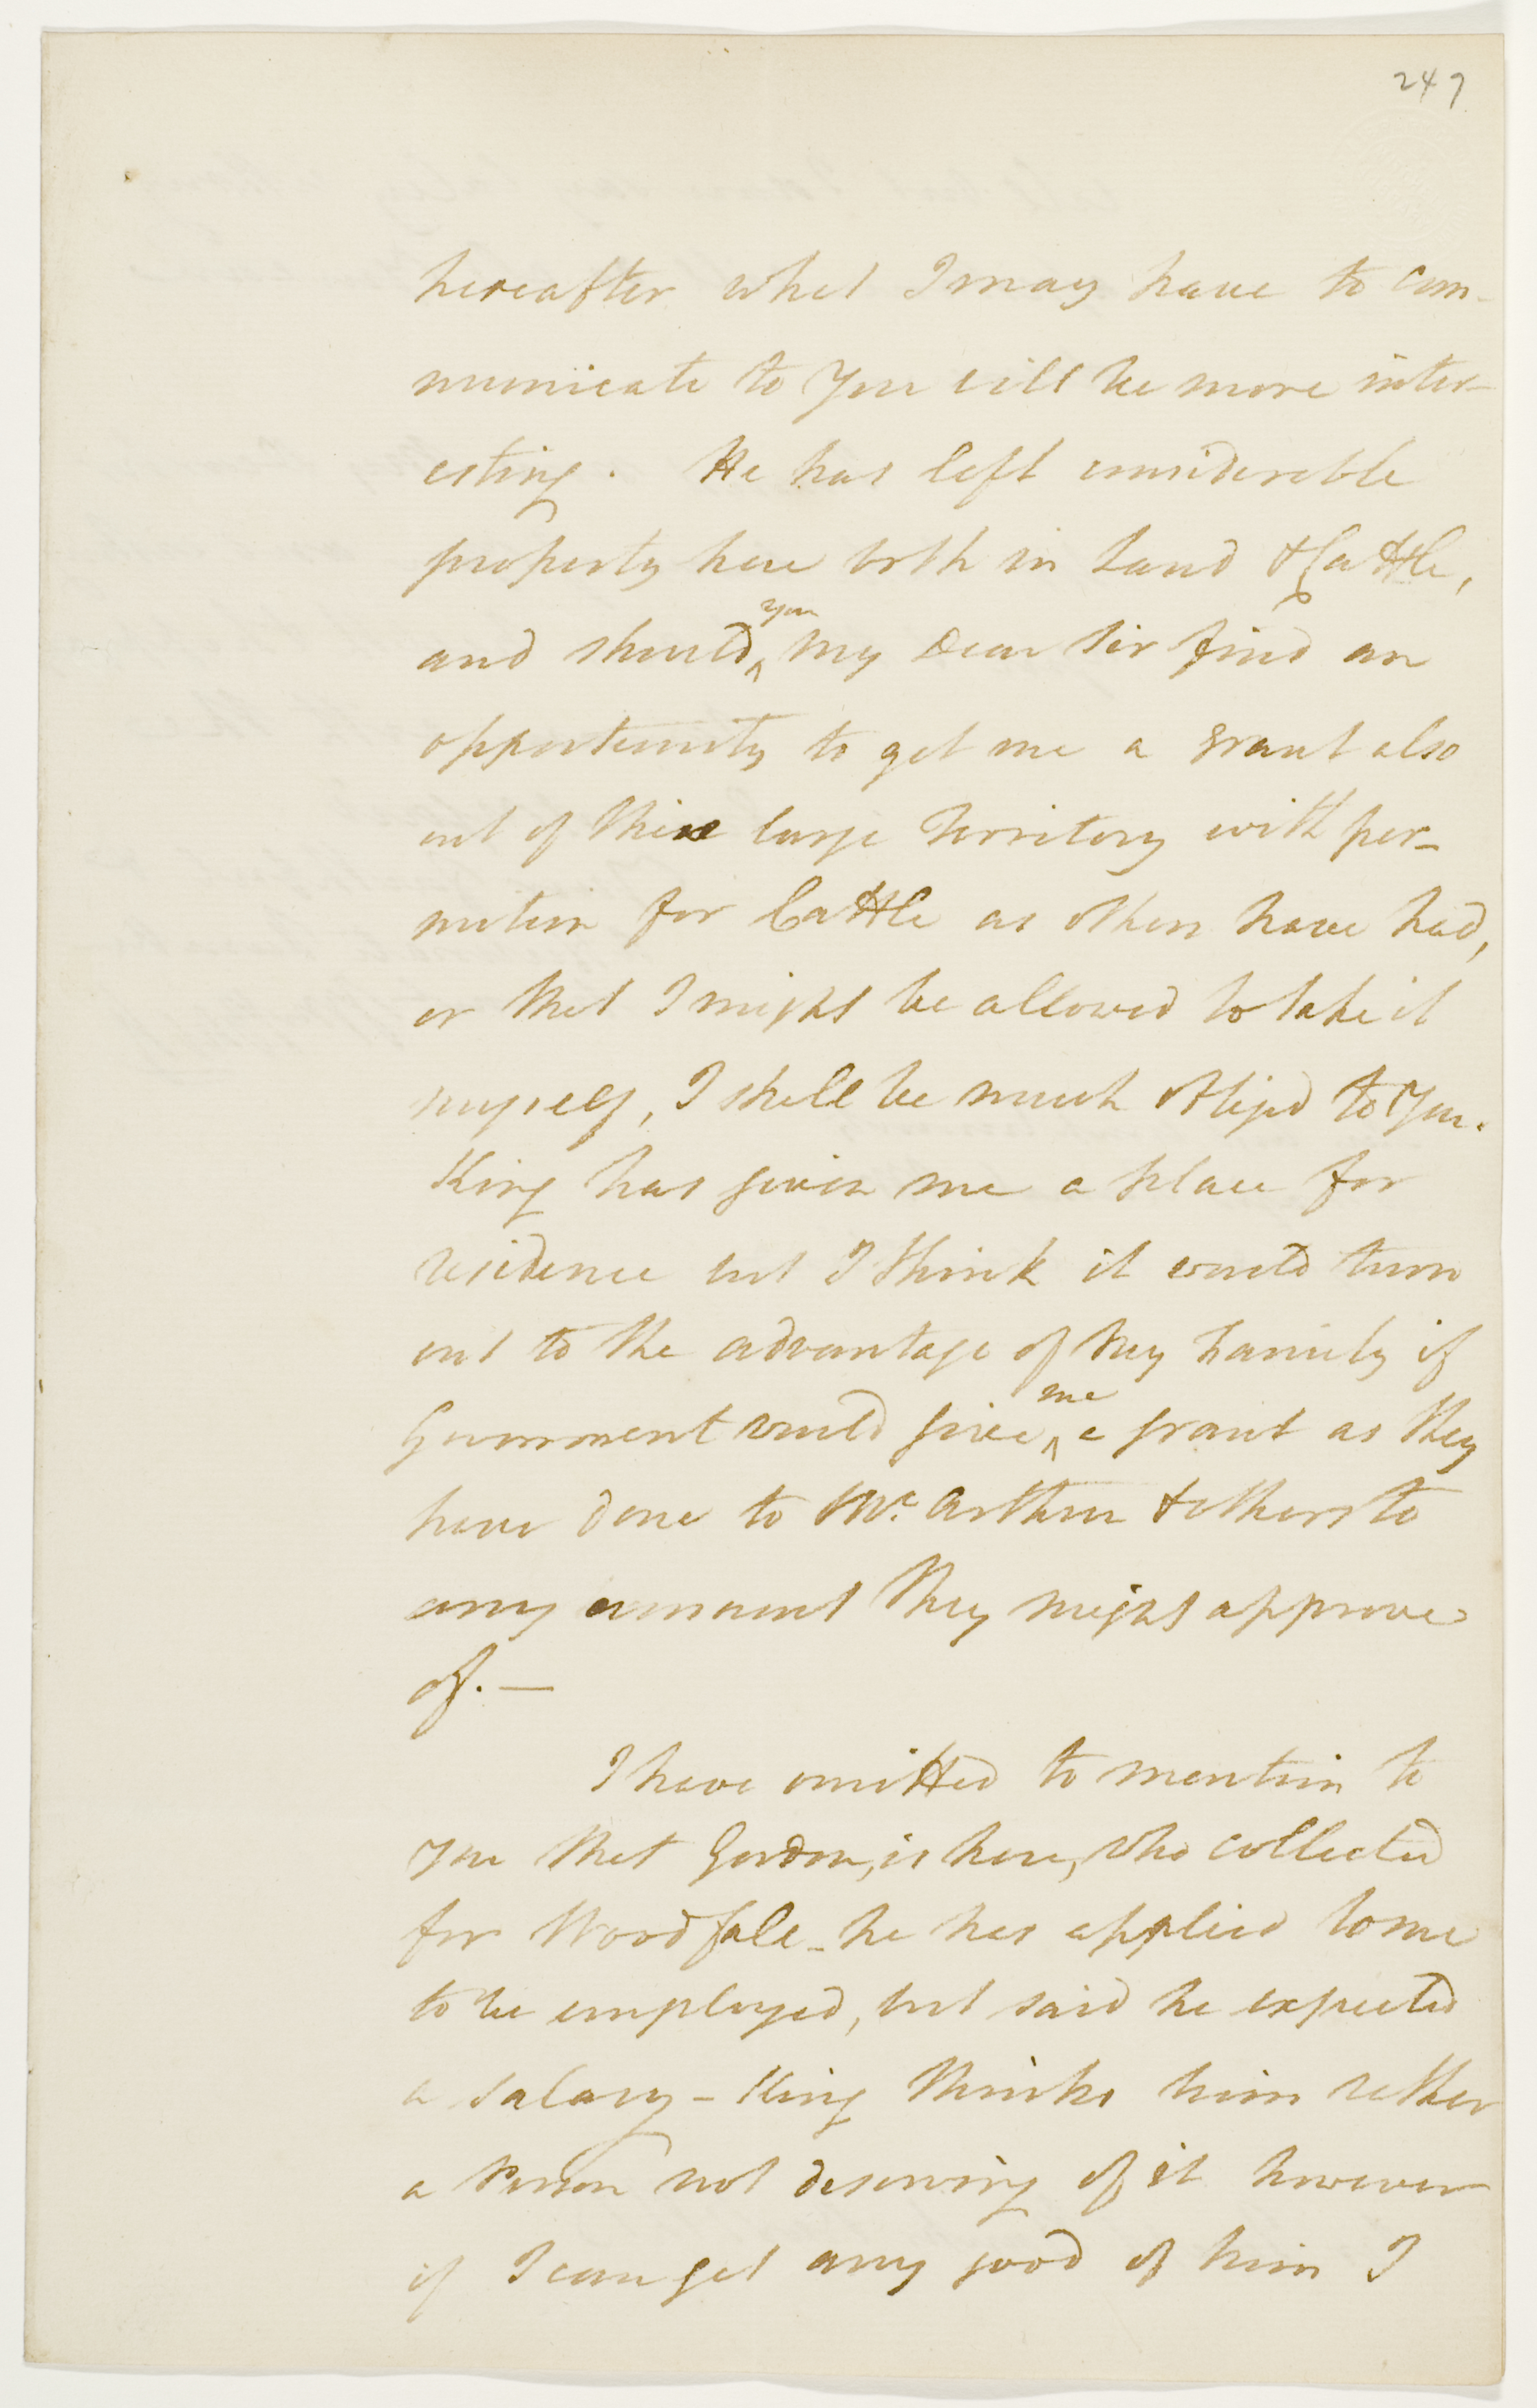 247
hereafter what I may have to com-
municate to You will be more inter-
esting. He has left considerable
property here both in Land & Cattle,
and should you my Dear Sir find an
opportunity to get me a grant also
out of this large Territory with per-
mition for Cattle as others have had,
or that I might be allowed to take it
myself, I shall be much obliged to You.
King has given me a place for
residence but I think it would turn
out to the advantage of my Family if
Government would give me a grant as they
have done to Mc. Arthur & others to
any amount they might approve
of. —
I have omitted to mention to
you that Gordon, is here, who collected
for Woodfale - he has applied to me
to be employed, but said he expected
a salary - King thinks him rather
a Person not deserving of it however
if I can get any good of him I